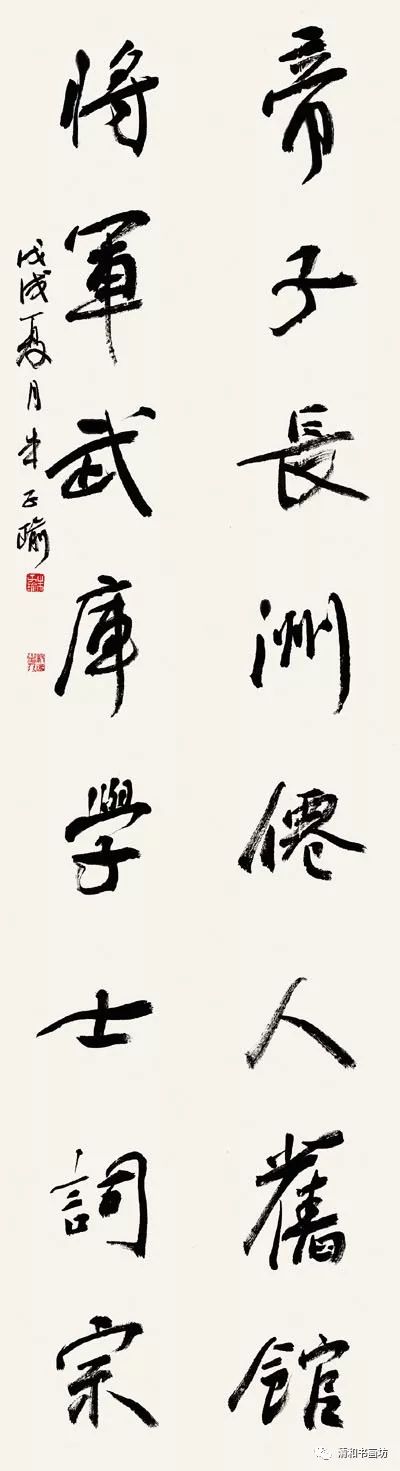 帝子長洲僊人舊館
將軍武庫學士詞宗
戊戌夏月朱正瑜
清和书画坊